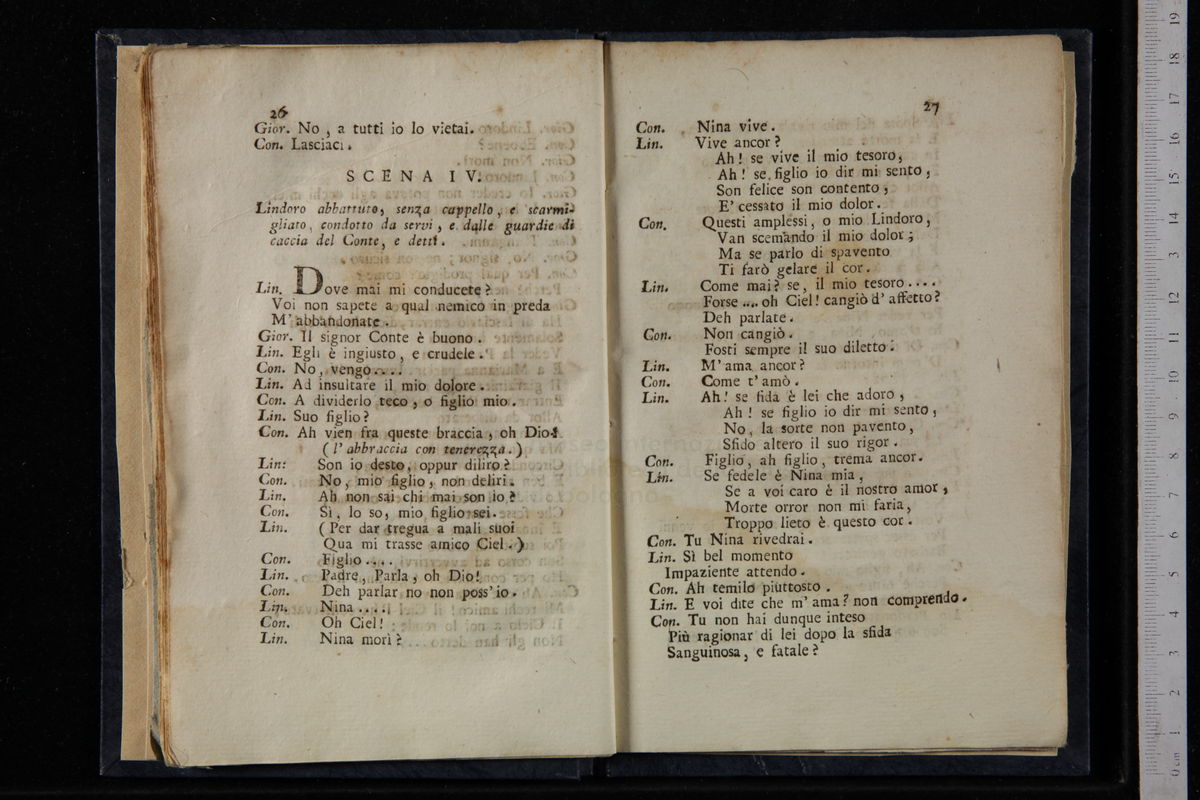 26
Gior. No, a tutti io lo vietai.
Con. Lasciaci.
SCENA IV.
Lindoro abbattuto, senza cappello, e scarmi-
gliato, condotto da servi, e dalle guardie di
caccia del Conte, e detti.
Lin. Dove mai mi conducete?
Voi non sapete a qual nemico in preda
M' abbandonate.
Gior. Il signor Conte è buono.
Lin. Egli è ingiusto, e crudele.
Con. No, vengo....
Lin. Ad insultare il mio dolore.
Con. A dividerlo teco, o figlio mio.
Lin. Suo figlio?
Con. Ah vien fra queste braccia, oh Dio!
(l' abbraccia con tenerezza.)
Lin. Son io desto, oppur diliro?
Con. No, mio figlio, non deliri.
Lin. Ah non sai chi mai son io?
Con. Sì, lo so, mio figlio sei.
Lin. (Per dar tregua a mali suoi
Qua mi trasse amico Ciel.)
Con. Figlio....
Lin. Padre, Parla, oh Dio!
Con. Deh parlar no non poss' io.
Lin. Nina....
Con. Oh Ciel!
Lin. Nina morì?
27
Con. Nina vive.
Lin. Vive ancor?
Ah! se vive il mio tesoro,
Ah! se figlio io dir mi sento,
Son felice son contento,
E' cessato il mio dolor.
Con. Questi amplessi, o mio Lindoro,
Van scemando il mio dolor;
Ma se parlo di spavento
Ti farò gelare il cor.
Lin. Come mai? se, il mio tesoro....
Forse .... oh Ciel! cangiò d' affetto?
Deh parlate.
Con. Non cangiò.
Fosti sempre il suo diletto.
Lin. M' ama ancor?
Con. Come t' amò.
Lin. Ah! se fida è lei che adoro,
Ah! se figlio io dir mi sento,
No, la sorte non pavento,
Sfido altero il suo rigor.
Con. Figlio, ah figlio, trema ancor.
Lin. Se fedele è Nina mia,
Se a voi caro è il nostro amor,
Morte orror non mi faria,
Troppo lieto è questo cor.
Con. Tu Nina rivedrai.
Lin. Sì bel momento
Impaziente attendo.
Con. Ah temilo piuttosto.
Lin. E voi dite che m' ama? non comprendo.
Con. Tu non hai dunque inteso
Più ragionar di lei dopo la sfida
Sanguinosa, e fatale?
0 cm 1 2 3 4 5 6 7 8 9 10 11 12 13 14 15 16 17 18 19